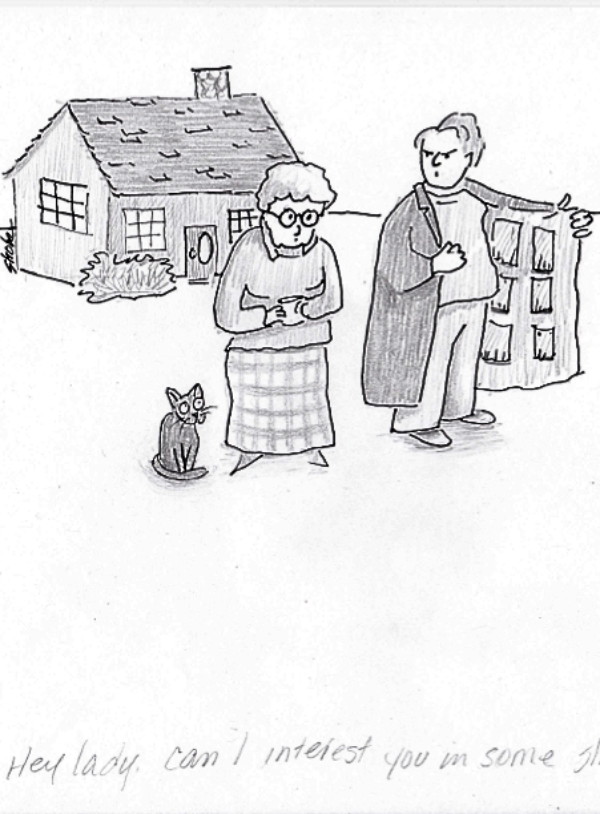 Hey lady. Can I interest you in some